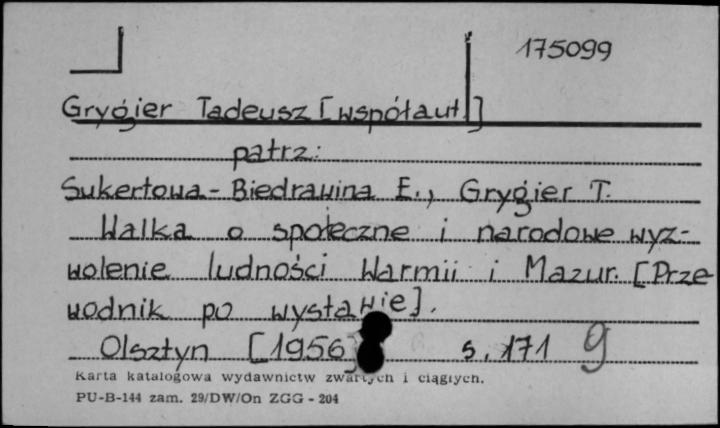 175099
Grygier Tadeusz [współaut.]
patrz:
Sukertowa-Biedrawina E., Grygier T.
Walka o społeczne i narodowe wyz-
wolenie ludności Warmii i Mazur. [Prze-
wodnik po wystawie].
Olsztyn [1956] s. 171 9
Karta katalogowa wydawnictw zwartych i ciągłych.
PU-B-144 zam. 29/DW/On ZGG - 204